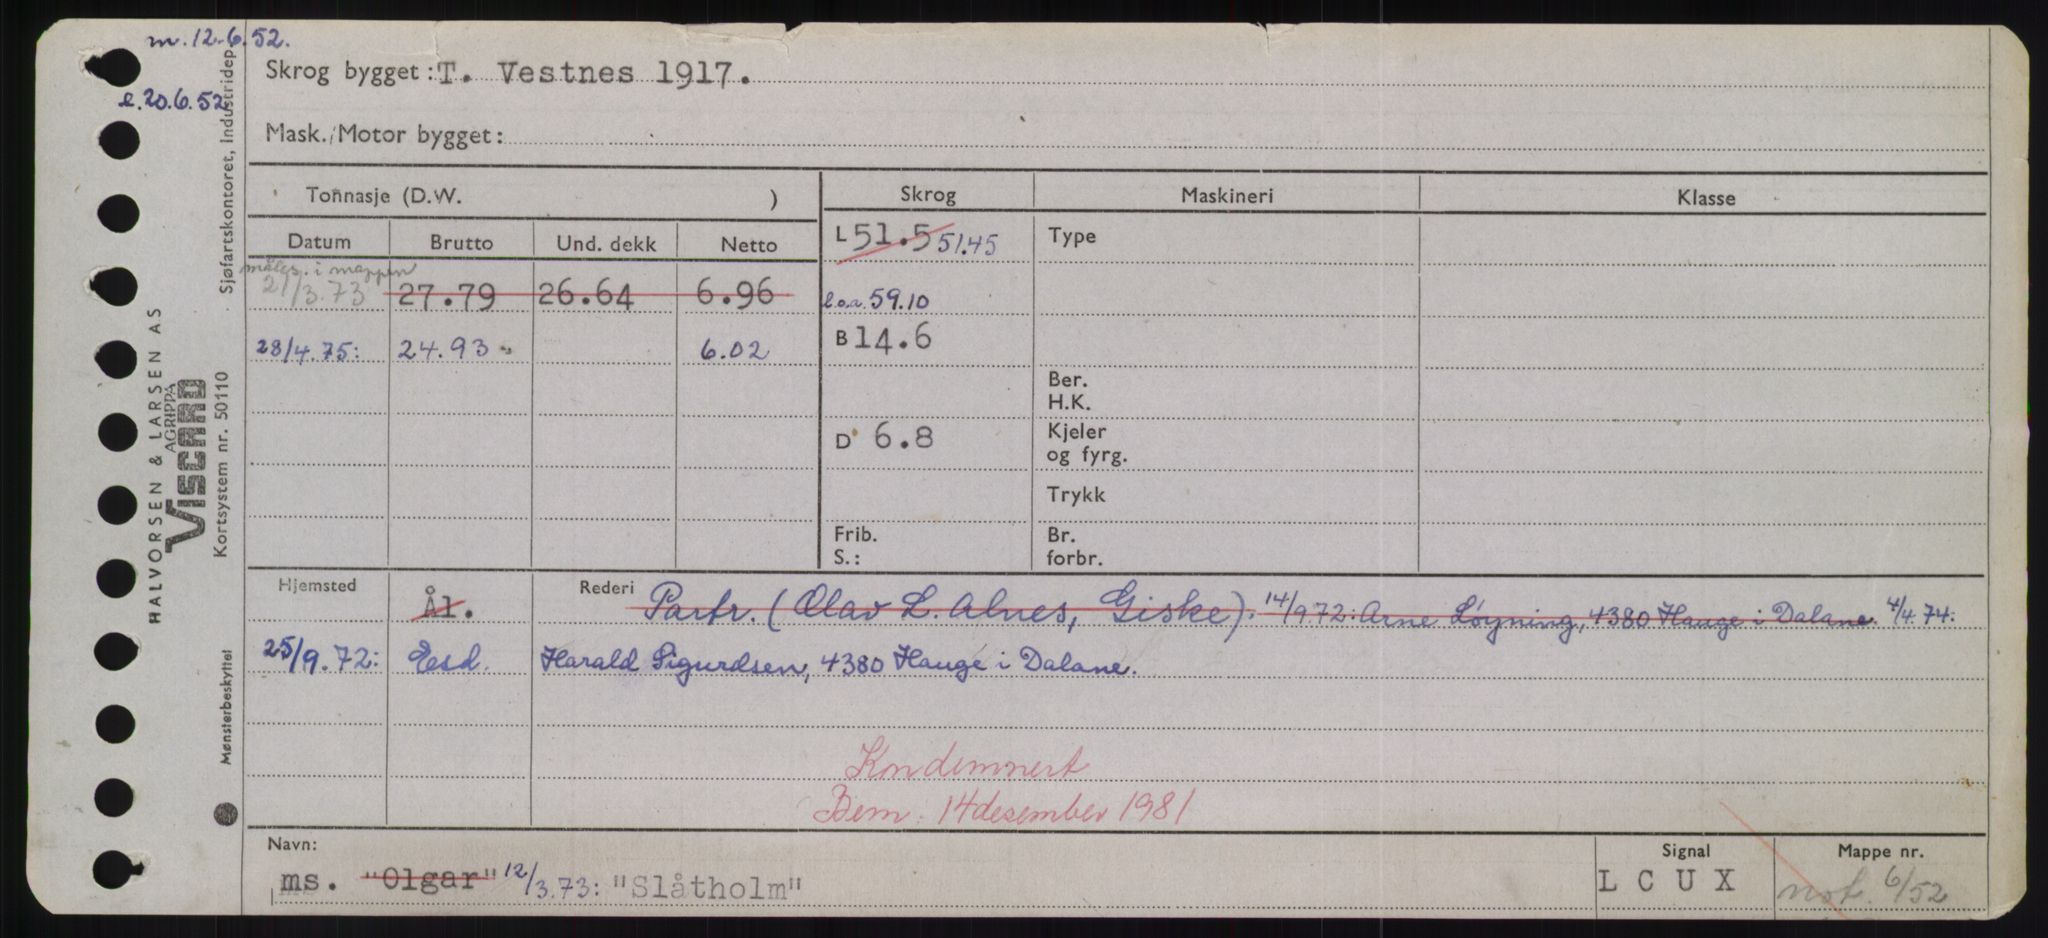 m. 12.6.52.
Skrog bygget: T. Vestnes 1917.
l. 20.6.52
Mask./Motor bygget:
Tonnasje (D.W. )
Skrog
Maskineri
Klasse
Datum
Brutto
Und. dekk
Netto
L 51.5 51.45
Type
måles. i mappen
21/3.73
27.79
26.64
6.96
l.o.a. 59.10
28/4.75:
24.93
6.02
B 14.6
Ber.
H.K.
D 6.8
Kjeler
og fyrg.
Trykk
Frib.
S.:
Br.
forbr.
Hjemsted
Ål.
Rederi
Partr. (Olav L. Alnes, Giske). 14/9.72: Arne Løyning, 4380 Hauge i Dalane. 4/4.74:
25/9.72:
Esd.
Harald Sigurdsen, 4380 Hauge i Dalane.
Kondemnert
Bem. 14 desember 1981
Navn:
ms. "Olgar" 12/3.73: "Slåtholm"
Signal
L C U X
Mappe nr.
not. 6/52
HALVORSEN & LARSEN AS
AGRIPPA
VISCARD
Kortsystem nr. 50110
Sjøfartskontoret, Industridep
Mønsterbeskyttet